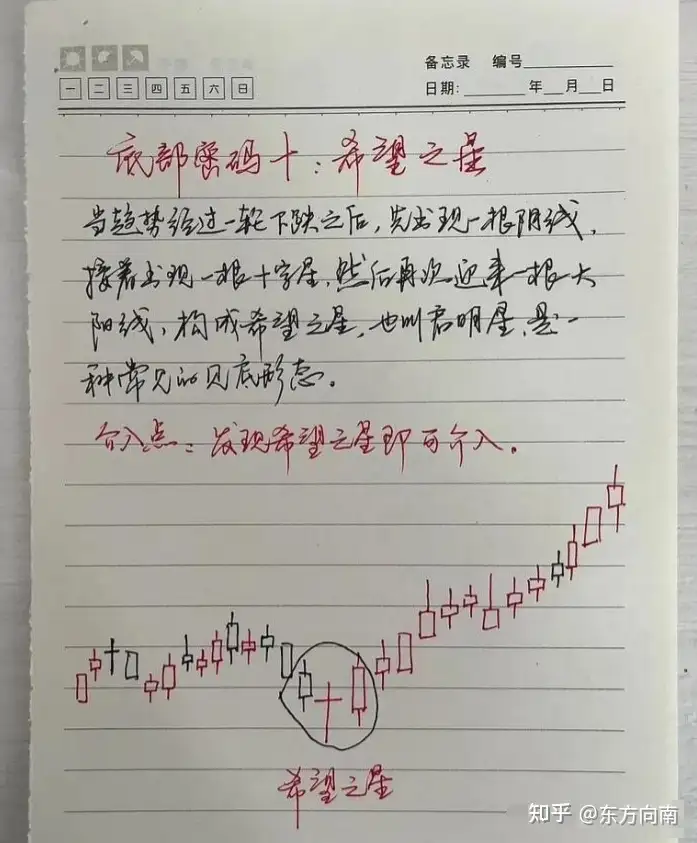 备忘录 编号
一 二 三 四 五 六 日
日期: 年 月 日
底部密码十:希望之星
当趋势经过一轮下跌之后,先出现一根阴线,
接着出现一根十字星,然后再次迎来一根大
阳线,构成希望之星,也叫启明星,是一
种常见的见底形态。
介入点:发现希望之星即可介入。
希望之星
知乎 @东方向南